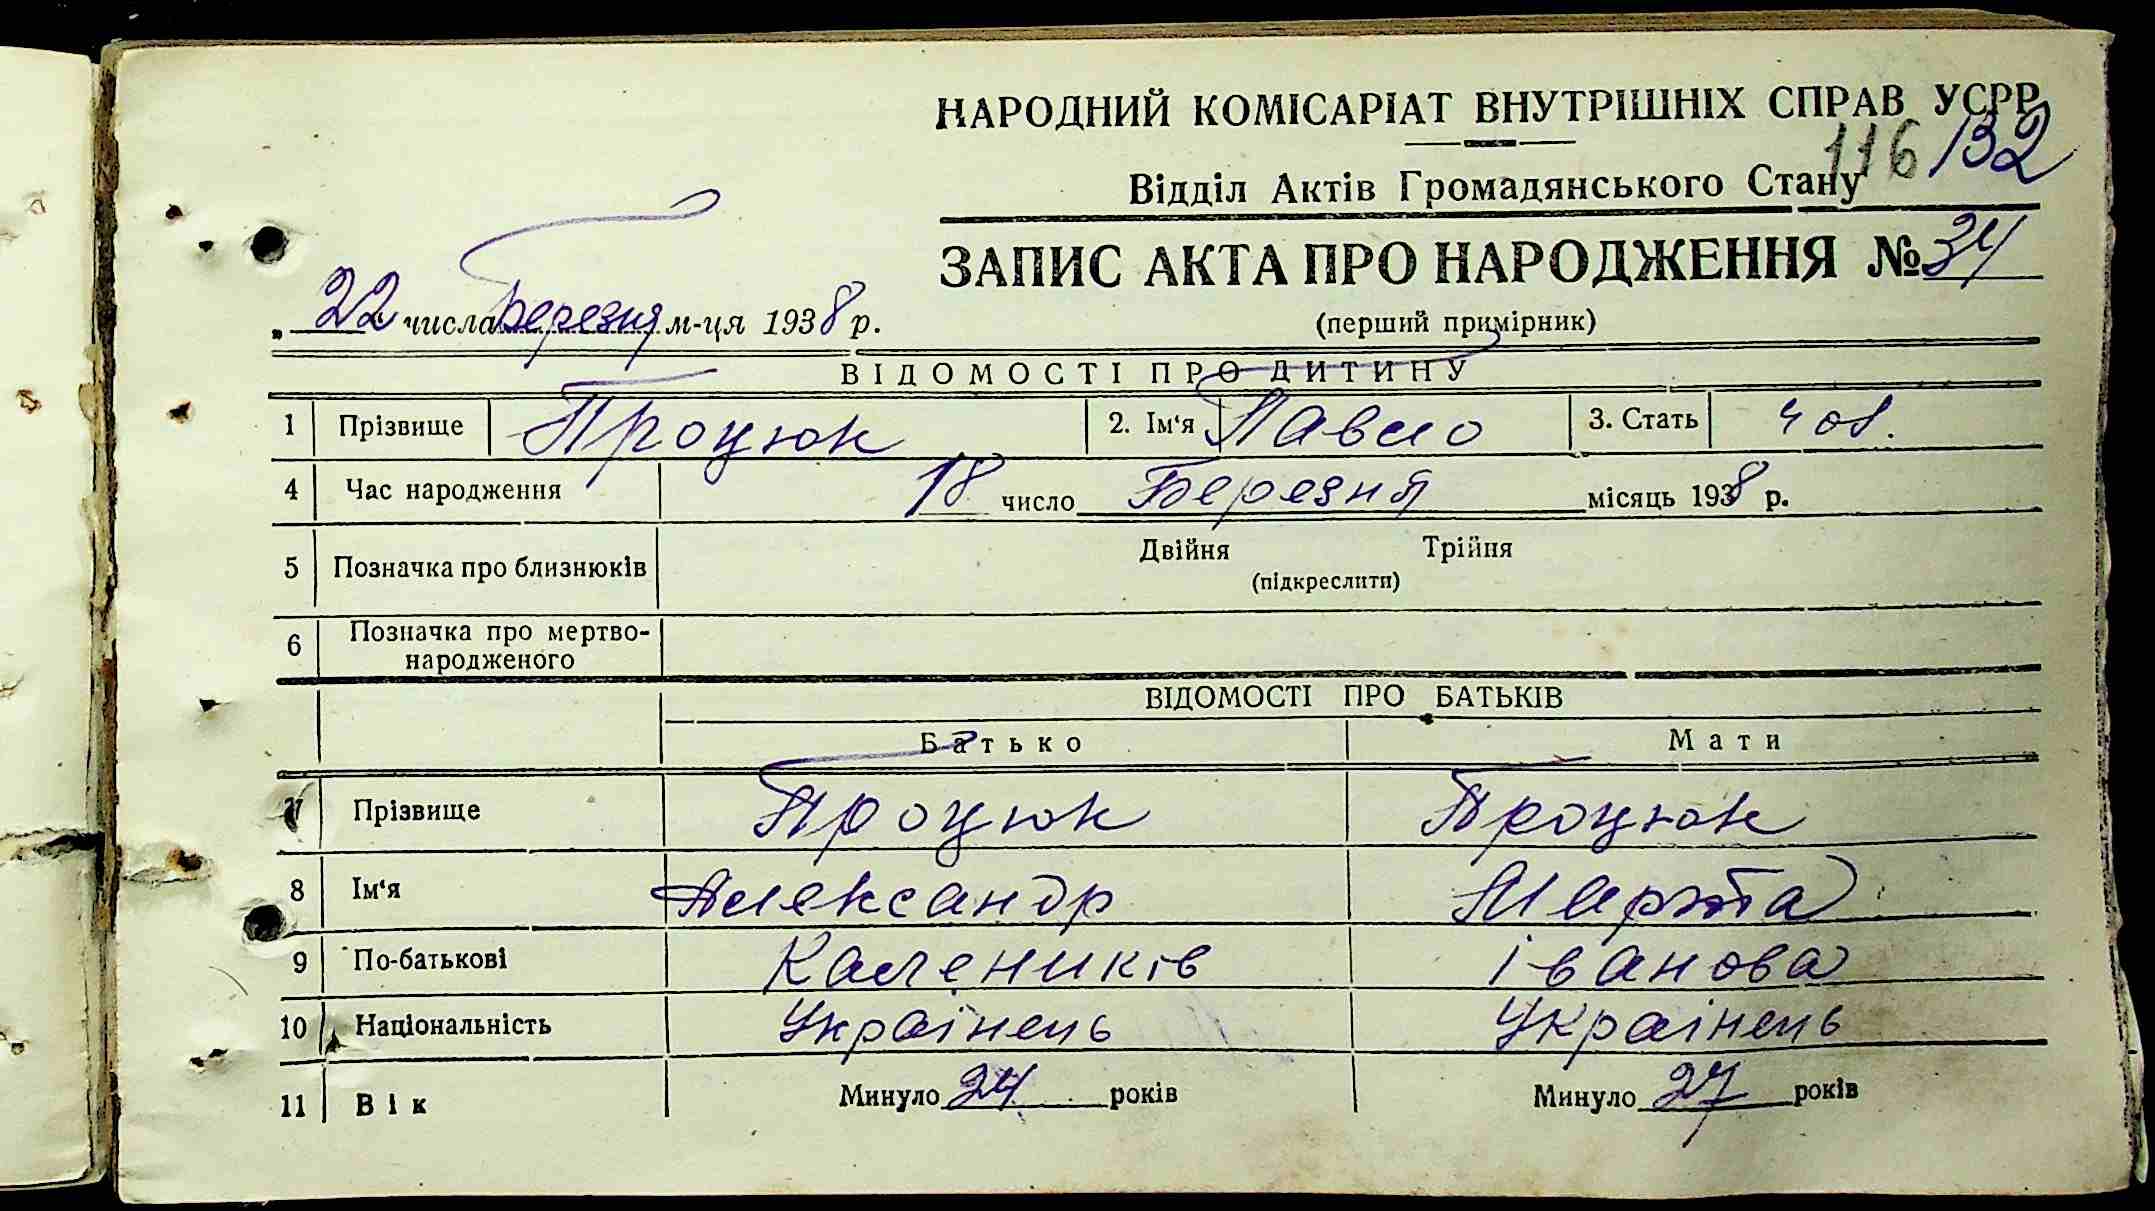 НАРОДНИЙ КОМІСАРІАТ ВНУТРІШНІХ СПРАВ УСРР
116 132
Відділ Актів Громадянського Стану
ЗАПИС АКТА ПРО НАРОДЖЕННЯ № 34
„ 22 числа Березня м-ця 1938 р.
(перший примірник)
ВІДОМОСТІ ПРО ДИТИНУ
1 Прізвище Процюк 2. Ім‘я Павло 3. Стать чол.
4 Час народження 18 число Березня місяць 1938 р.
5 Позначка про близнюків Двійня Трійня
(підкреслити)
6 Позначка про мертво-
народженого
ВІДОМОСТІ ПРО БАТЬКІВ
Батько Мати
7 Прізвище Процюк Процюк
8 Ім‘я Александр Марта
9 По-батькові Калеників Іванова
10 Національність Українець Українець
11 Вік Минуло 24 років Минуло 27 років